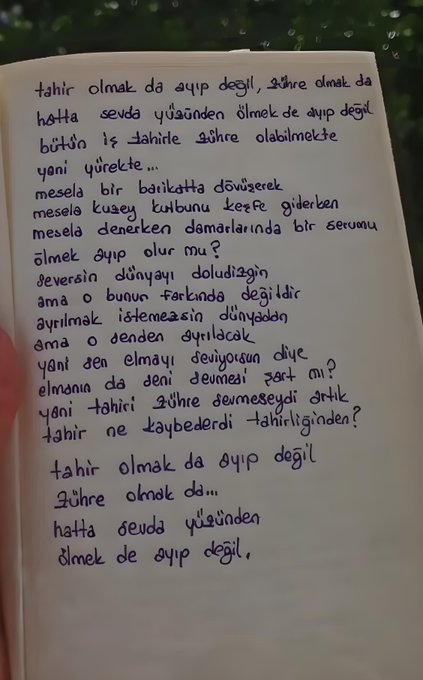 tahir olmak da ayıp değil, zühre olmak da
hatta sevda yüzünden ölmek de ayıp değil
bütün iş tahirle zühre olabilmekte
yani yürekte...
mesela bir barikatta dövüşerek
mesela kuzey kutbunu keşfe giderken
mesela denerken damarlarında bir serumu
ölmek ayıp olur mu?
seversin dünyayı doludizgin
ama o bunun farkında değildir
ayrılmak istemezsin dünyadan
ama o senden ayrılacak
yani sen elmayı seviyorsun diye
elmanın da seni sevmesi şart mı?
yani tahiri zühre sevmeseydi artık
tahir ne kaybederdi tahirliğinden?
tahir olmak da ayıp değil
zühre olmak da...
hatta sevda yüzünden
ölmek de ayıp değil.